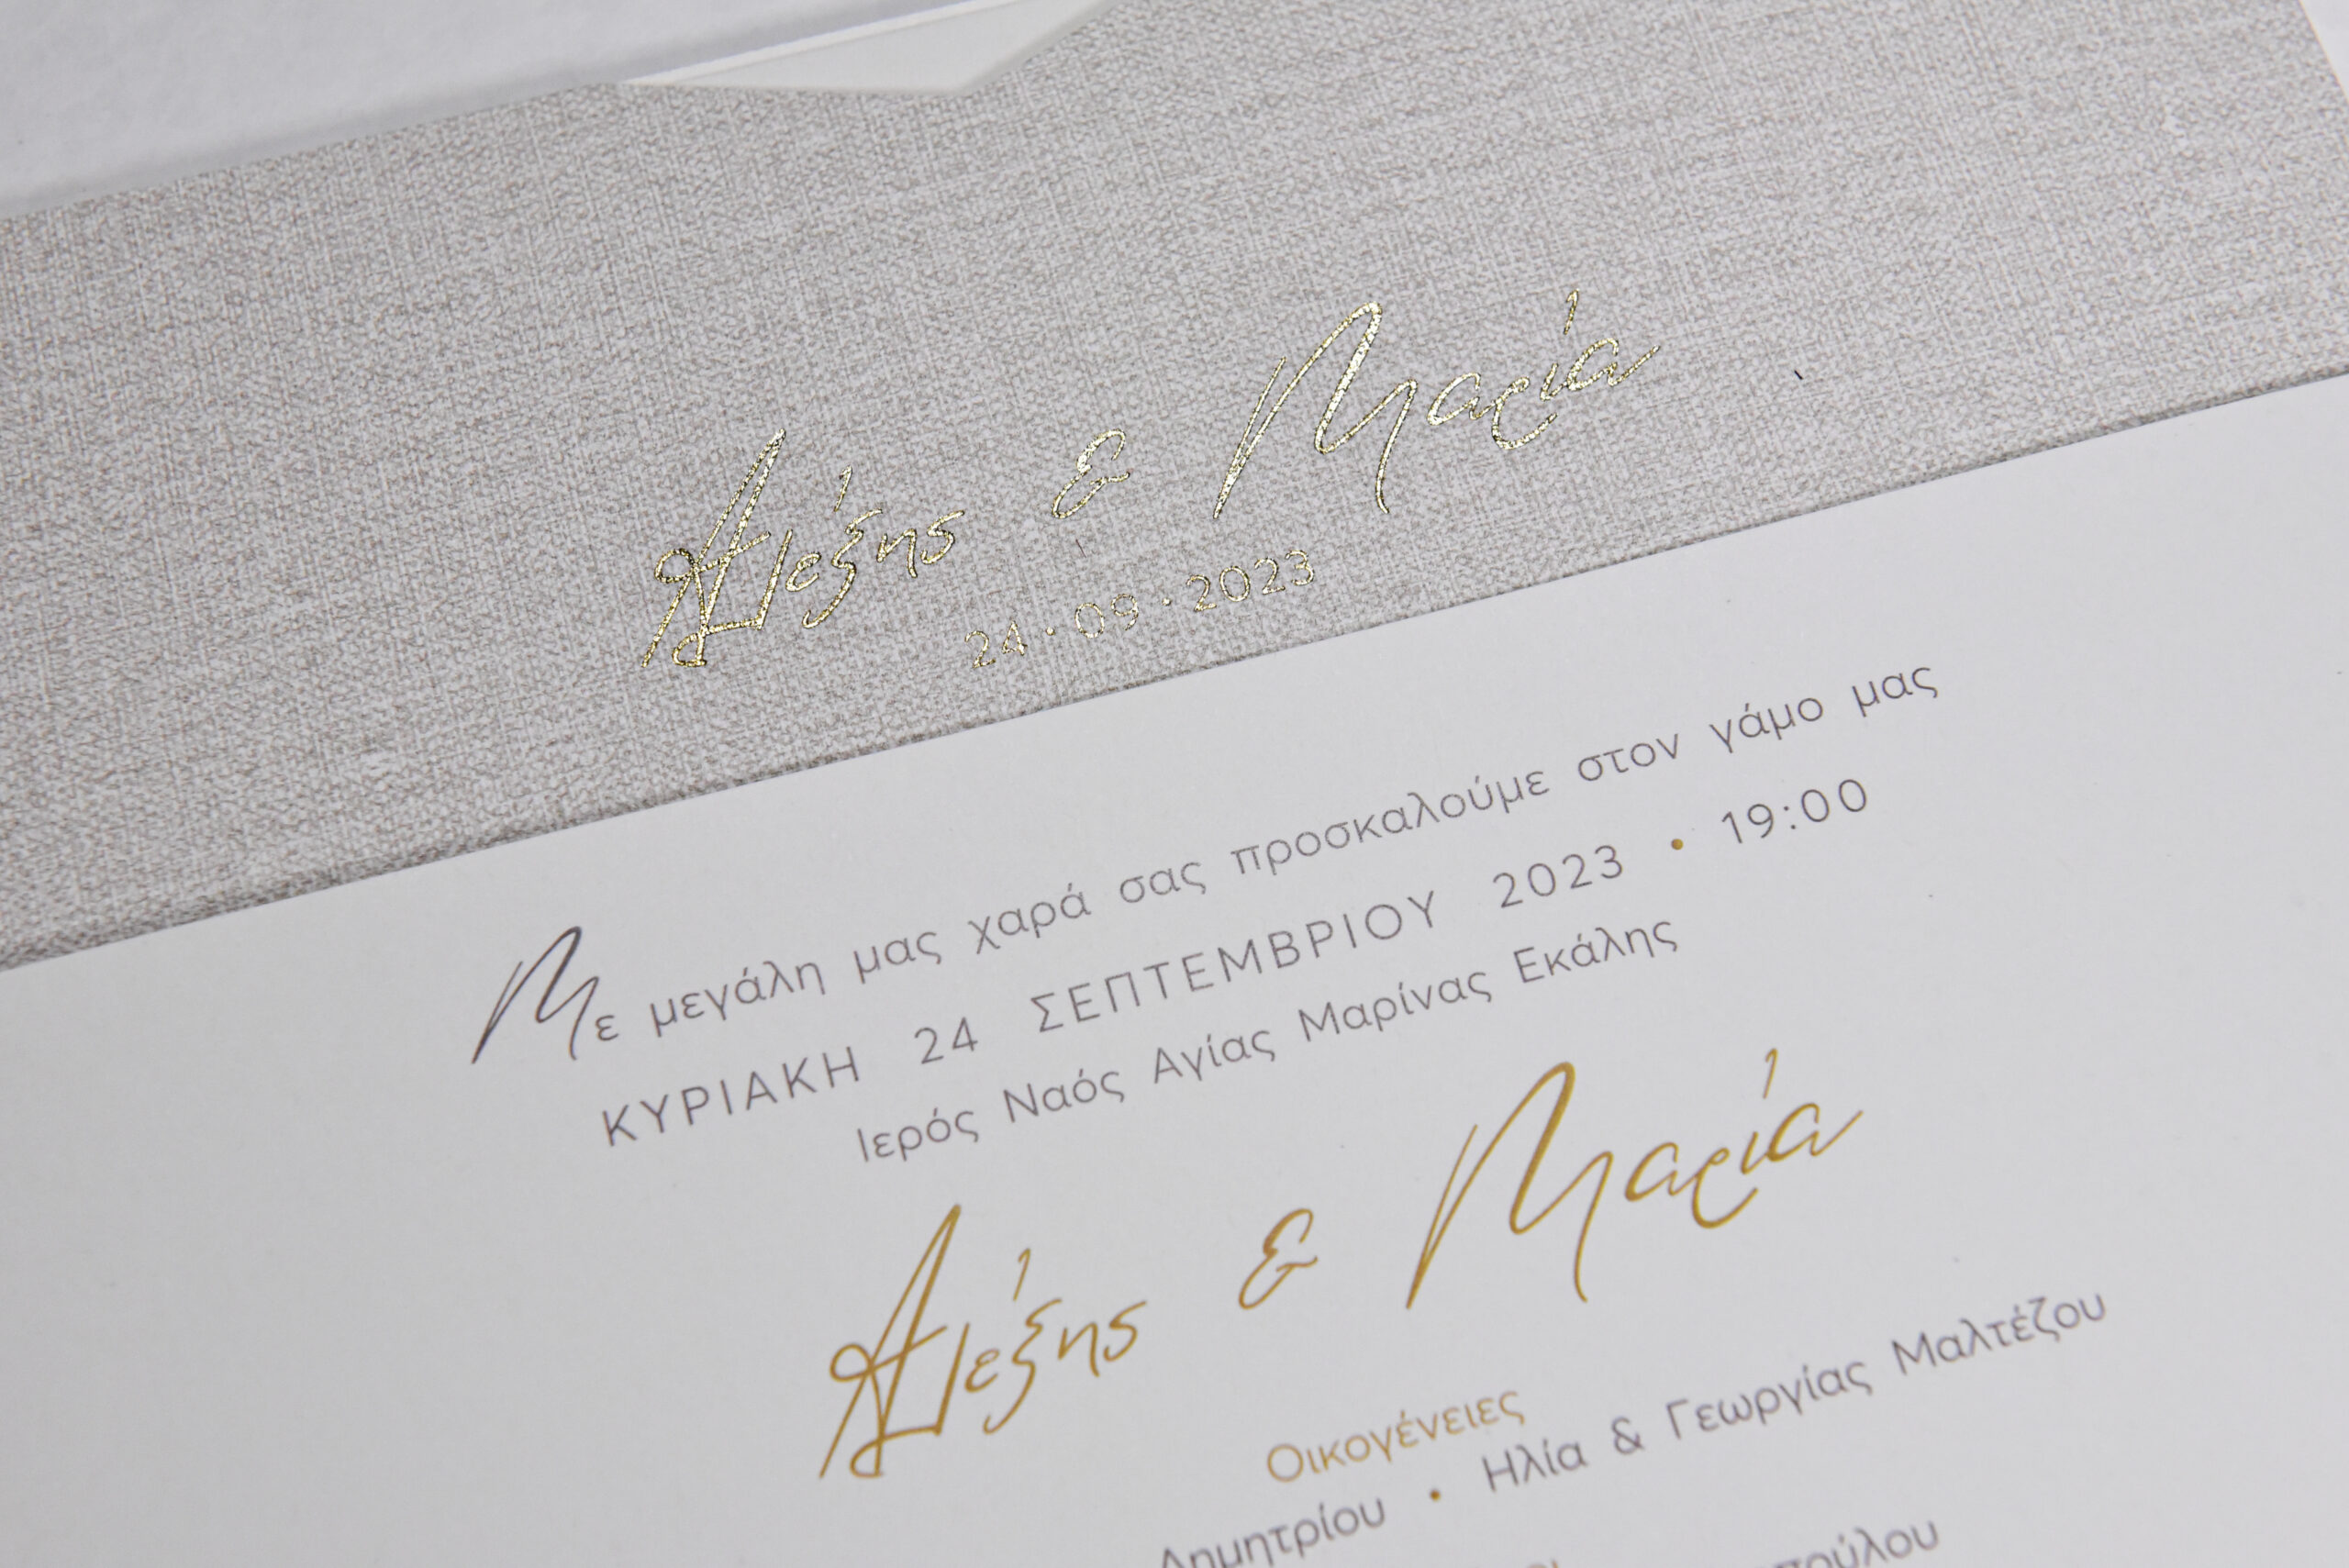 Αλέξης & Μαρία
24·09·2023
Με μεγάλη μας χαρά σας προσκαλούμε στον γάμο μας
ΚΥΡΙΑΚΗ 24 ΣΕΠΤΕΜΒΡΙΟΥ 2023 • 19:00
Ιερός Ναός Αγίας Μαρίνας Εκάλης
Αλέξης & Μαρία
Οικογένειες
Δημητρίου • Ηλία & Γεωργίας Μαλτέζου